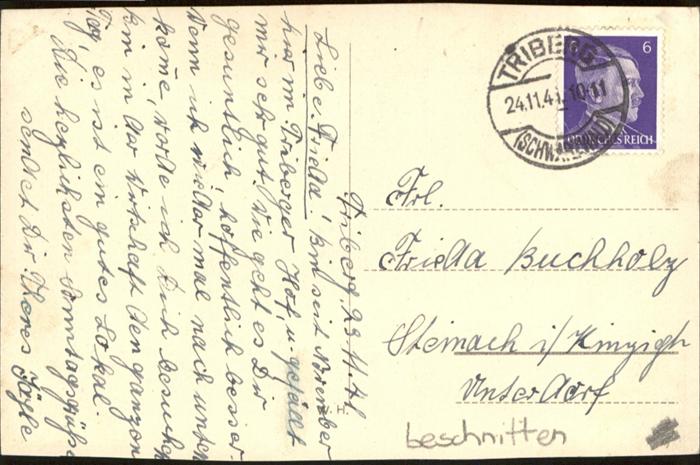 Triberg 23.11.41
Liebe Frieda! Bin seit November
hier im Triberger Hof, u. gefällt
mir sehr gut. Wie geht es Dir
gesuntlich, hoffentlich besser.
Wenn ich wieder mal nach unten
kome, werde ich Dich besuchen
bin in der Wirtschaft den ganzen
Tag, es ist ein gutes Lokal.
Die herzlichsten Sonntagsgrüße
sendet Dir Theres Jägle
TRIBERG
24.11.41. 10-11
(SCHWARZWALD)
6
DEUTSCHES REICH
Frl.
Frieda Buchholz
Steinach i/Kinzigh
Unterdorf
beschnitten